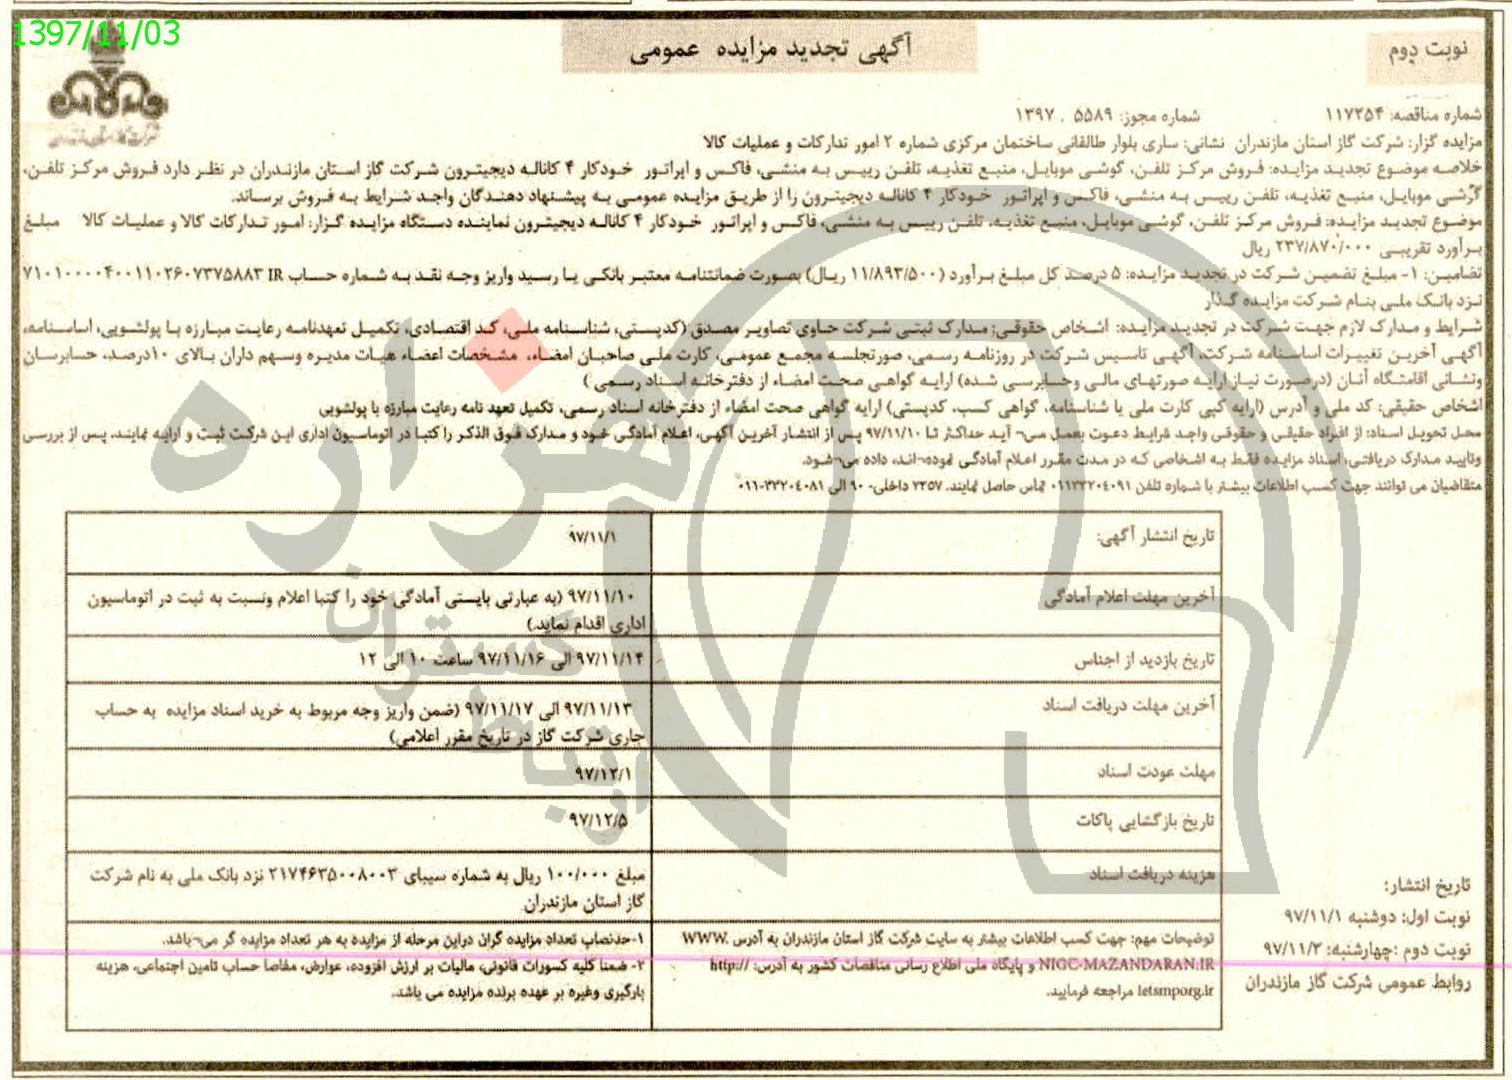 1397/11/03
نوبت دوم
آگهی تجدید مزایده عمومی
شماره مناقصه: ۱۱۷۲۵۴ شماره مجوز: ۵۵۸۹ . ۱۳۹۷
مزایده گزار: شرکت گاز استان مازندران نشانی: ساری بلوار طالقانی ساختمان مرکزی شماره ۲ امور تدارکات و عملیات کالا
خلاصه موضوع تجدید مزایده: فروش مرکز تلفن، گوشی موبایل، منبع تغذیه، تلفن رییس به منشی، فاکس و اپراتور خودکار ۴ کاناله دیجیترون شرکت گاز استان مازندران در نظر دارد فروش مرکز تلفن،
گوشی موبایل، منبع تغذیه، تلفن رییس به منشی، فاکس و اپراتور خودکار ۴ کاناله دیجیترون را از طریق مزایده عمومی به پیشنهاد دهندگان واجد شرایط به فروش برساند.
موضوع تجدید مزایده: فروش مرکز تلفن، گوشی موبایل، منبع تغذیه، تلفن رییس به منشی، فاکس و اپراتور خودکار ۴ کاناله دیجیترون نماینده دستگاه مزایده گزار: امور تدارکات کالا و عملیات کالا مبلغ
برآورد تقریبی ۲۳۷/۸۷۰/۰۰۰ ریال
تضامین: ۱- مبلغ تضمین شرکت در تجدید مزایده: ۵ درصد کل مبلغ برآورد (۱۱/۸۹۳/۵۰۰ ریال) بصورت ضمانتنامه معتبر بانکی یا رسید واریز وجه نقد به شماره حساب IR ۷۱۰۱۰۰۰۰۴۰۰۱۱۰۲۶۰۷۳۷۵۸۸۳
نزد بانک ملی بنام شرکت مزایده گذار
شرایط و مدارک لازم جهت شرکت در تجدید مزایده: اشخاص حقوقی: مدارک ثبتی شرکت حاوی تصاویر مصدق (کدپستی، شناسنامه ملی، کد اقتصادی، تکمیل تعهدنامه رعایت مبارزه با پولشویی، اساسنامه،
آگهی آخرین تغییرات اساسنامه شرکت، آگهی تاسیس شرکت در روزنامه رسمی، صورتجلسه مجمع عمومی، کارت ملی صاحبان امضاء، مشخصات اعضاء هیات مدیره وسهم داران بالای ۱۰درصد، حسابرسان
ونشانی اقامتگاه آنان (درصورت نیاز ارایه صورتهای مالی وحسابرسی شده) ارایه گواهی صحت امضاء از دفترخانه اسناد رسمی )
اشخاص حقیقی: کد ملی و آدرس (ارایه کپی کارت ملی یا شناسنامه، گواهی کسب، کدپستی) ارایه گواهی صحت امضاء از دفترخانه اسناد رسمی، تکمیل تعهد نامه رعایت مبارزه با پولشویی
محل تحویل اسناد: از افراد حقیقی و حقوقی واجد شرایط دعوت بعمل می¬ آید حداکثر تا ۹۷/۱۱/۱۰ پس از انتشار آخرین آگهی، اعلام آمادگی خود و مدارک فوق الذکر را کتبا در اتوماسیون اداری این شرکت ثبت و ارایه نمایند. پس از بررسی
وتایید مدارک دریافتی، اسناد مزایده فقط به اشخاصی که در مدت مقرر اعلام آمادگی نموده¬اند، داده می¬شود.
متقاضیان می توانند جهت کسب اطلاعات بیشتر با شماره تلفن ۰۱۱۳۳۲۰۴۰۹۱ تماس حاصل نمایند. ۲۲۵۷ داخلی- ۹۰ الی ۰۱۱-۳۳۲۰۴۰۸۱
تاریخ انتشار آگهی: ۹۷/۱۱/۱
آخرین مهلت اعلام آمادگی ۹۷/۱۱/۱۰ (به عبارتی بایستی آمادگی خود را کتبا اعلام ونسبت به ثبت در اتوماسیون
اداری اقدام نماید.)
تاریخ بازدید از اجناس ۹۷/۱۱/۱۴ الی ۹۷/۱۱/۱۶ ساعت ۱۰ الی ۱۲
آخرین مهلت دریافت اسناد ۹۷/۱۱/۱۳ الی ۹۷/۱۱/۱۷ (ضمن واریز وجه مربوط به خرید اسناد مزایده به حساب
جاری شرکت گاز در تاریخ مقرر اعلامی)
مهلت عودت اسناد ۹۷/۱۲/۱
تاریخ بازگشایی پاکات ۹۷/۱۲/۵
هزینه دریافت اسناد مبلغ ۱۰۰/۰۰۰ ریال به شماره سیبای ۲۱۷۴۶۳۵۰۰۸۰۰۳ نزد بانک ملی به نام شرکت
گاز استان مازندران
توضیحات مهم: جهت کسب اطلاعات بیشتر به سایت شرکت گاز استان مازندران به آدرس WWW.
NIGC-MAZANDARAN.IR و پایگاه ملی اطلاع رسانی مناقصات کشور به آدرس: http://
ietsmporg.ir مراجعه فرمایید.
۱-حدنصاب تعداد مزایده گران دراین مرحله از مزایده به هر تعداد مزایده گر می¬باشد.
۲- ضمنا کلیه کسورات قانونی، مالیات بر ارزش افزوده، عوارض، مفاصا حساب تامین اجتماعی، هزینه
بارگیری وغیره بر عهده برنده مزایده می باشد.
تاریخ انتشار:
نوبت اول: دوشنبه ۹۷/۱۱/۱
نوبت دوم :چهارشنبه: ۹۷/۱۱/۳
روابط عمومی شرکت گاز مازندران
هزاره
گستران
ارتباط